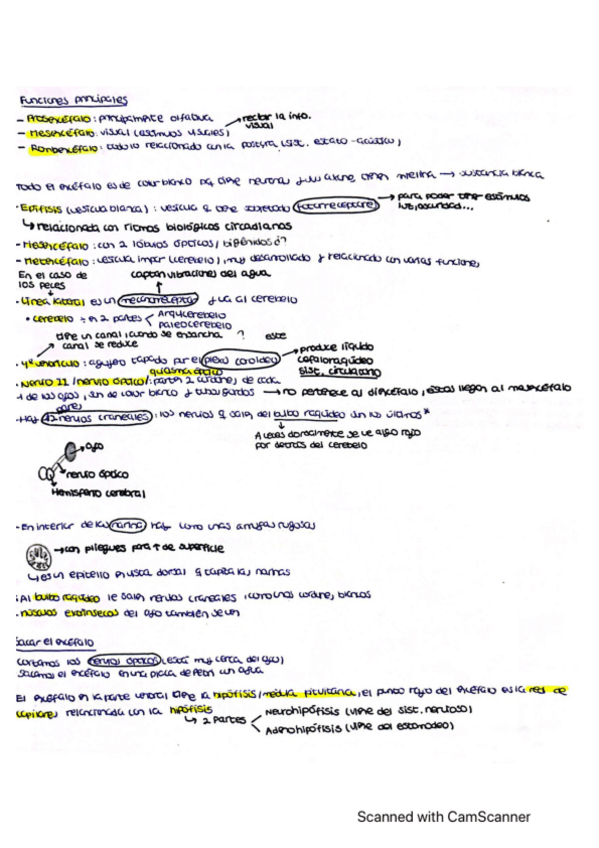 Funciones principales
- Prosencéfalo: principalmente olfativa
- Mesencéfalo: visual (estímulos visuales) → rectar la info. visual
- Rombencéfalo: todo lo relacionado con la postura (sist. estato-acústico)
Todo el encéfalo es de color blanco pq tiene neuronas y sus axones tienen mielina → sustancia blanca
· Epífisis (vesícula blanca): vesícula q tiene sobretodo fotorreceptores → para poder tener estímulos luz, oscuridad...
↳ relacionada con ritmos biológicos circadianos
- Mesencéfalo: con 2 lóbulos ópticos / bigéminos ó?
- Metencéfalo: vesícula impar (cerebelo), muy desarrollado y relacionado con varias funciones
En el caso de los peces
captan vibraciones del agua
· Línea lateral es un mecanorreceptor y va al cerebelo
• cerebelo ÷ en 2 partes < Arquicerebelo
Paleocerebelo
tiene un canal, cuando se ensancha ? este
canal se reduce
· 4º ventrículo: agujero tapado por el plexo coroideo → produce líquido cefalorraquídeo sist. circulatorio
quiasma óptico
· Nervio II / nervio óptico/: parten 2 cordones, de cada
1 de los ojos, son de color blanco y tubulados → no pertenece al diencéfalo, estos llegan al mesencéfalo
pares
· Hay 12 nervios craneales: los nervios q salen del bulbo raquídeo son los últimos*
↓
A veces dorsalmente se ve algo rojo
por detrás del cerebelo
→ ojo
→ nervio óptico
Hemisferio cerebral
· En interior de las narina hay como unas arrugas rugosas
→ con pliegues para ↑ de superficie
↳ es un epitelio en vista dorsal q tapiza las narinas
· Al bulbo raquídeo le salen nervios craneales, como unos cordones blancos
· músculos extrínsecos del ojo también se ven
Sacar el encéfalo
Cortamos los nervios ópticos (está muy cerca del ojo)
Sacamos el encéfalo en una placa de Petri con agua
El encéfalo en la parte ventral tiene la hipófisis/media pituitaria, el punto rojo del encéfalo es la red de
capilares relacionada con la hipófisis
↳ 2 partes < Neurohipófisis (viene del sist. nervioso)
Adenohipófisis (viene del estomodeo)
Scanned with CamScanner